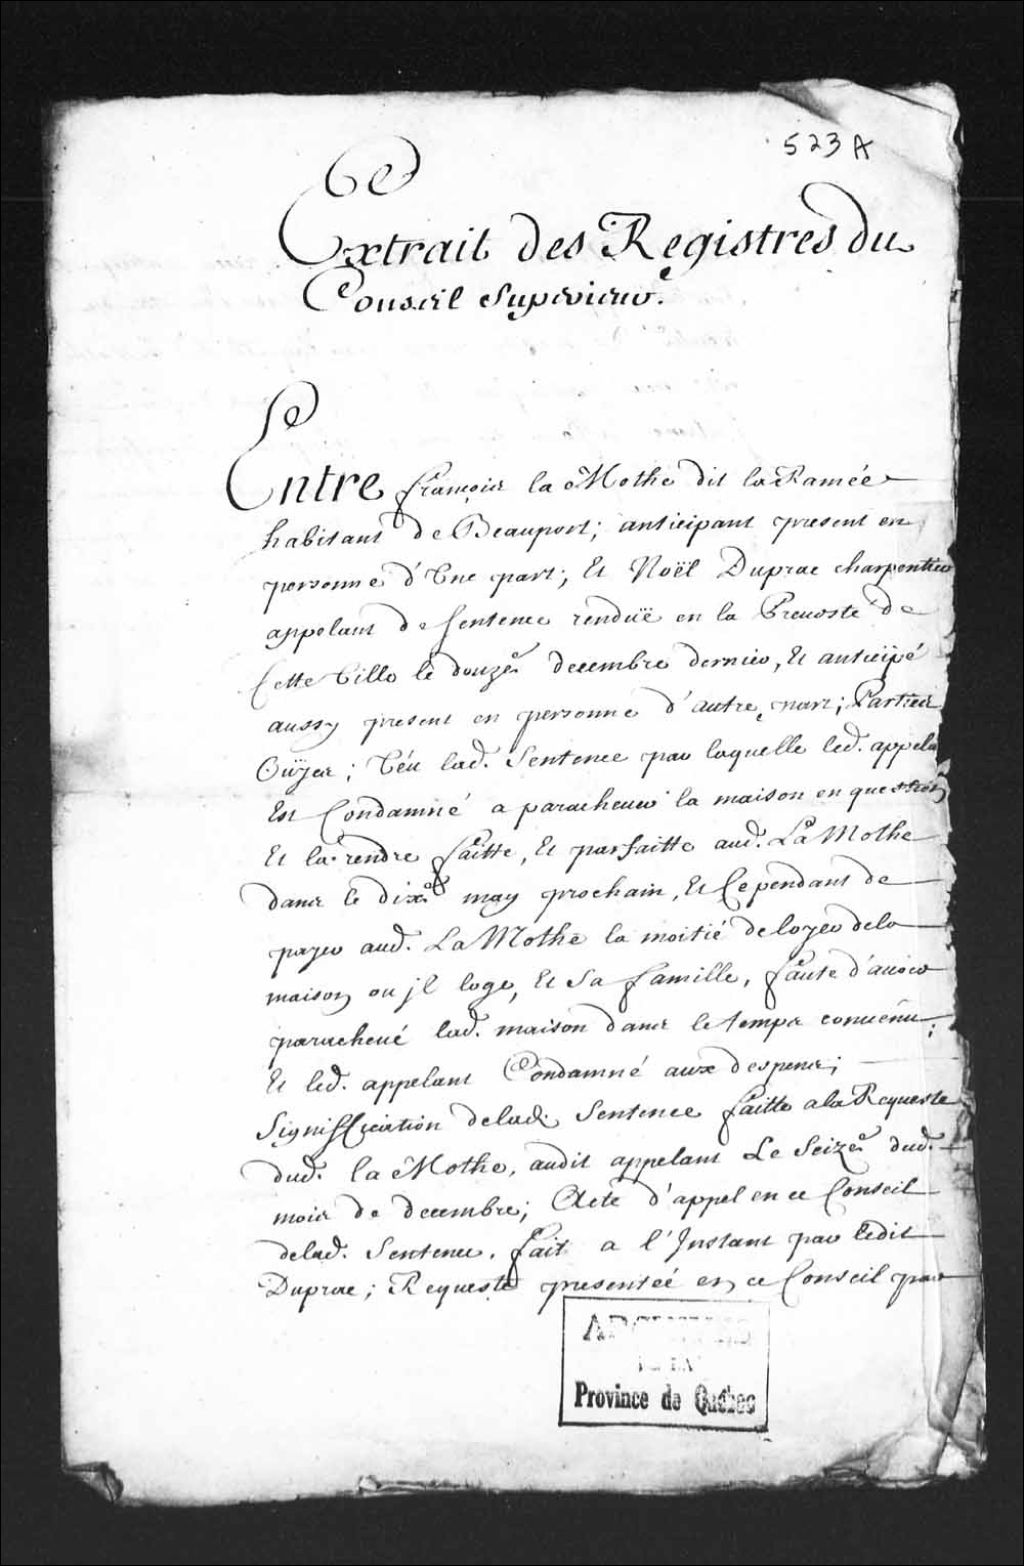 523 A
Extrait des Registres du
Conseil Superieur.
Entre françois la Mothe dit la Ramée
habitant de Beauport; anticipant present en
personne d'Une part; Et Noël Duprac charpentier
appelant de sentence renduë en la Prevosté de
Cette Ville le douze.e decembre dernier, Et anticipé
aussy present en personne d'autre part; Parties
Oüyes; Veu lad. Sentence par laquelle led. appela
Est Condamné a parachever la maison en question
Et la rendre faitte, Et parfaitte aud. La Mothe
dans le dix.e may prochain, Et Cependant de
payer aud. La Mothe la moitié de loyer dela
maison ou jl loge, Et Sa famille, faute d'avoir
paracheué lad. maison dans le temps convenu;
Et led. appelant Condamné aux despens;
Signiffication delad. Sentence faitte ala Requeste
dud. la Mothe, audit appelant Le Seize.e dud.
mois de decembre; Acte d'appel en ce Conseil
delad. Sentence. fait a l'Instant par ledit
Duprac; Requeste presentée en ce Conseil par
ARCHIVES
DE LA
Province de Québec